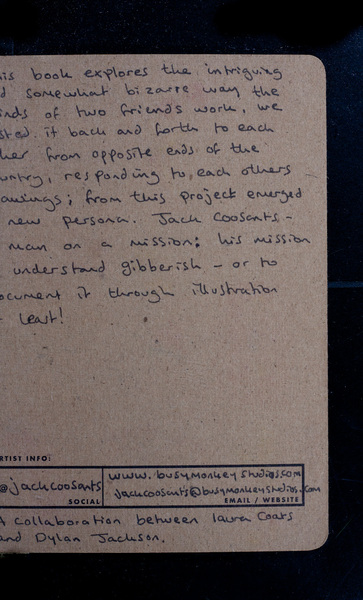 his book explores the intriguing
d somewhat bizarre way the
inds of two friends work, we
sted it back and forth to each
her from opposite ends of the
untry, responding to each others
awings; from this project emerged
new persona. Jack Coosants -
man on a mission: his mission
understand gibberish - or to
ocument it through illustration
least!
RTIST INFO:
@jackcoosants
SOCIAL
www.busymonkeystudios.com
jackcoosants@busymonkeystudios.com
EMAIL / WEBSITE
A collaboration between Laura Coats
and Dylan Jackson.